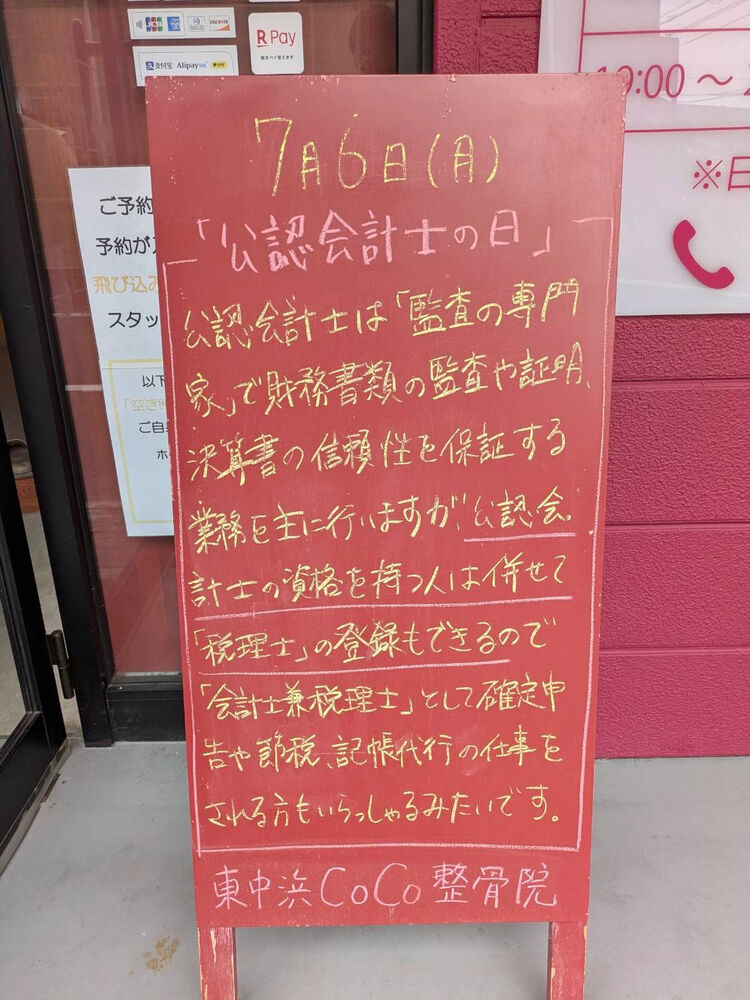 JCB
DISCOVER
支付宝 Alipay
R Pay
楽天ペイ使えます
19:00 ～ 2
※日
ご予約
予約が
飛び込み
スタッ
以下
「空き
ご自
ホ
7月6日(月)
「公認会計士の日」
公認会計士は「監査の専門
家」で財務書類の監査や証明、
決算書の信頼性を保証する
業務を主に行いますが、公認会
計士の資格を持つ人は併せて
「税理士」の登録もできるので
「会計士兼税理士」として確定申
告や節税、記帳代行の仕事を
される方もいらっしゃるみたいです。
東中浜CoCo整骨院